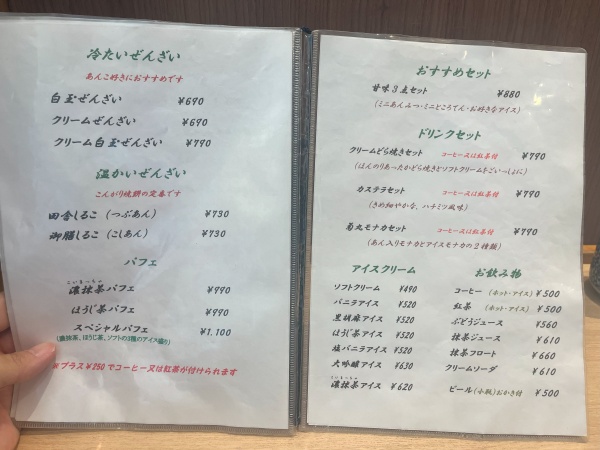 冷たいぜんざい
あんこ好きにおすすめです
白玉ぜんざい ¥690
クリームぜんざい ¥690
クリーム白玉ぜんざい ¥790
温かいぜんざい
こんがり焼餅の定番です
田舎しるこ(つぶあん) ¥730
御膳しるこ(こしあん) ¥730
パフェ
こいまっちゃ
濃抹茶パフェ ¥990
ほうじ茶パフェ ¥990
スペシャルパフェ ¥1,100
(濃抹茶、ほうじ茶、ソフトの3種のアイス盛り)
※プラス¥250でコーヒー又は紅茶が付けられます
おすすめセット
甘味3点セット ¥880
(ミニあんみつ・ミニところてん・お好きなアイス)
ドリンクセット
クリームどら焼きセット コーヒー又は紅茶付 ¥790
(ほんのりあったかどら焼きとソフトクリームをごいっしょに)
カステラセット コーヒー又は紅茶付 ¥790
(きめ細やかな、ハチミツ風味)
菊丸モナカセット コーヒー又は紅茶付 ¥790
(あん入りモナカとアイスモナカの2種類)
アイスクリーム
ソフトクリーム ¥490
バニラアイス ¥520
黒胡麻アイス ¥520
ほうじ茶アイス ¥520
塩バニラアイス ¥520
大吟醸アイス ¥630
こいまっちゃ
濃抹茶アイス ¥620
お飲み物
コーヒー (ホット・アイス) ¥500
紅茶 (ホット・アイス) ¥500
ぶどうジュース ¥560
抹茶ジュース ¥610
抹茶フロート ¥660
クリームソーダ ¥610
ビール(小瓶)おかき付 ¥500